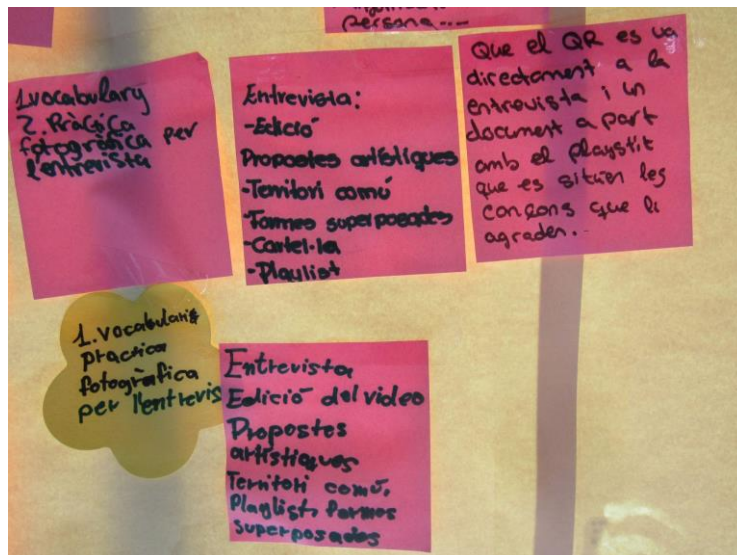 persona...
1 vocabulary
2. Pràctica
fotogràfica per
l'entrevista
Entrevista:
-Edició
Propostes artístiques
-Territori comú
-Formes superposades
-Cartel·la
-Playlist
Que el QR es va
directament a la
entrevista i un
document a part
amb el playstit
que es sitúen les
cançons que li
agraden..
1. vocabulari
practica
fotogràfica
per l'entrevis
Entrevista
Edició del video
Propostes
artístiques
Territori comú,
Playlist, formes
superposades